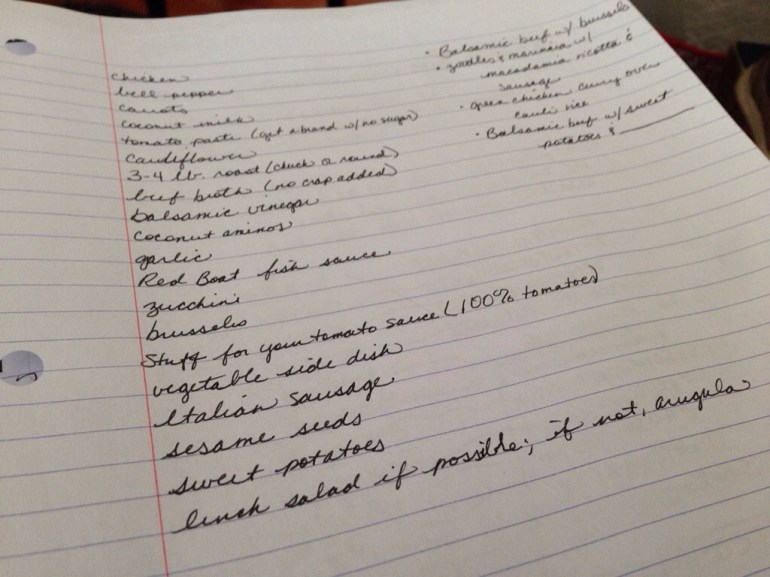 chicken
bell pepper
carrots
coconut milk
tomato paste (get a brand w/ no sugar)
cauliflower
3-4 lb. roast (chuck or round)
beef broth (no crap added)
balsamic vinegar
coconut aminos
garlic
Red Boat fish sauce
zucchini
brussels
Stuff for your tomato sauce (100% tomatoes)
vegetable side dish
Italian sausage
sesame seeds
sweet potatoes
lunch salad if possible; if not, arugula
• Balsamic beef w/ brussels
• zoodles & marinara w/
macadamia ricotta &
sausage
• green chicken curry over
cauli rice
• Balsamic beef w/ sweet
potatoes & ______